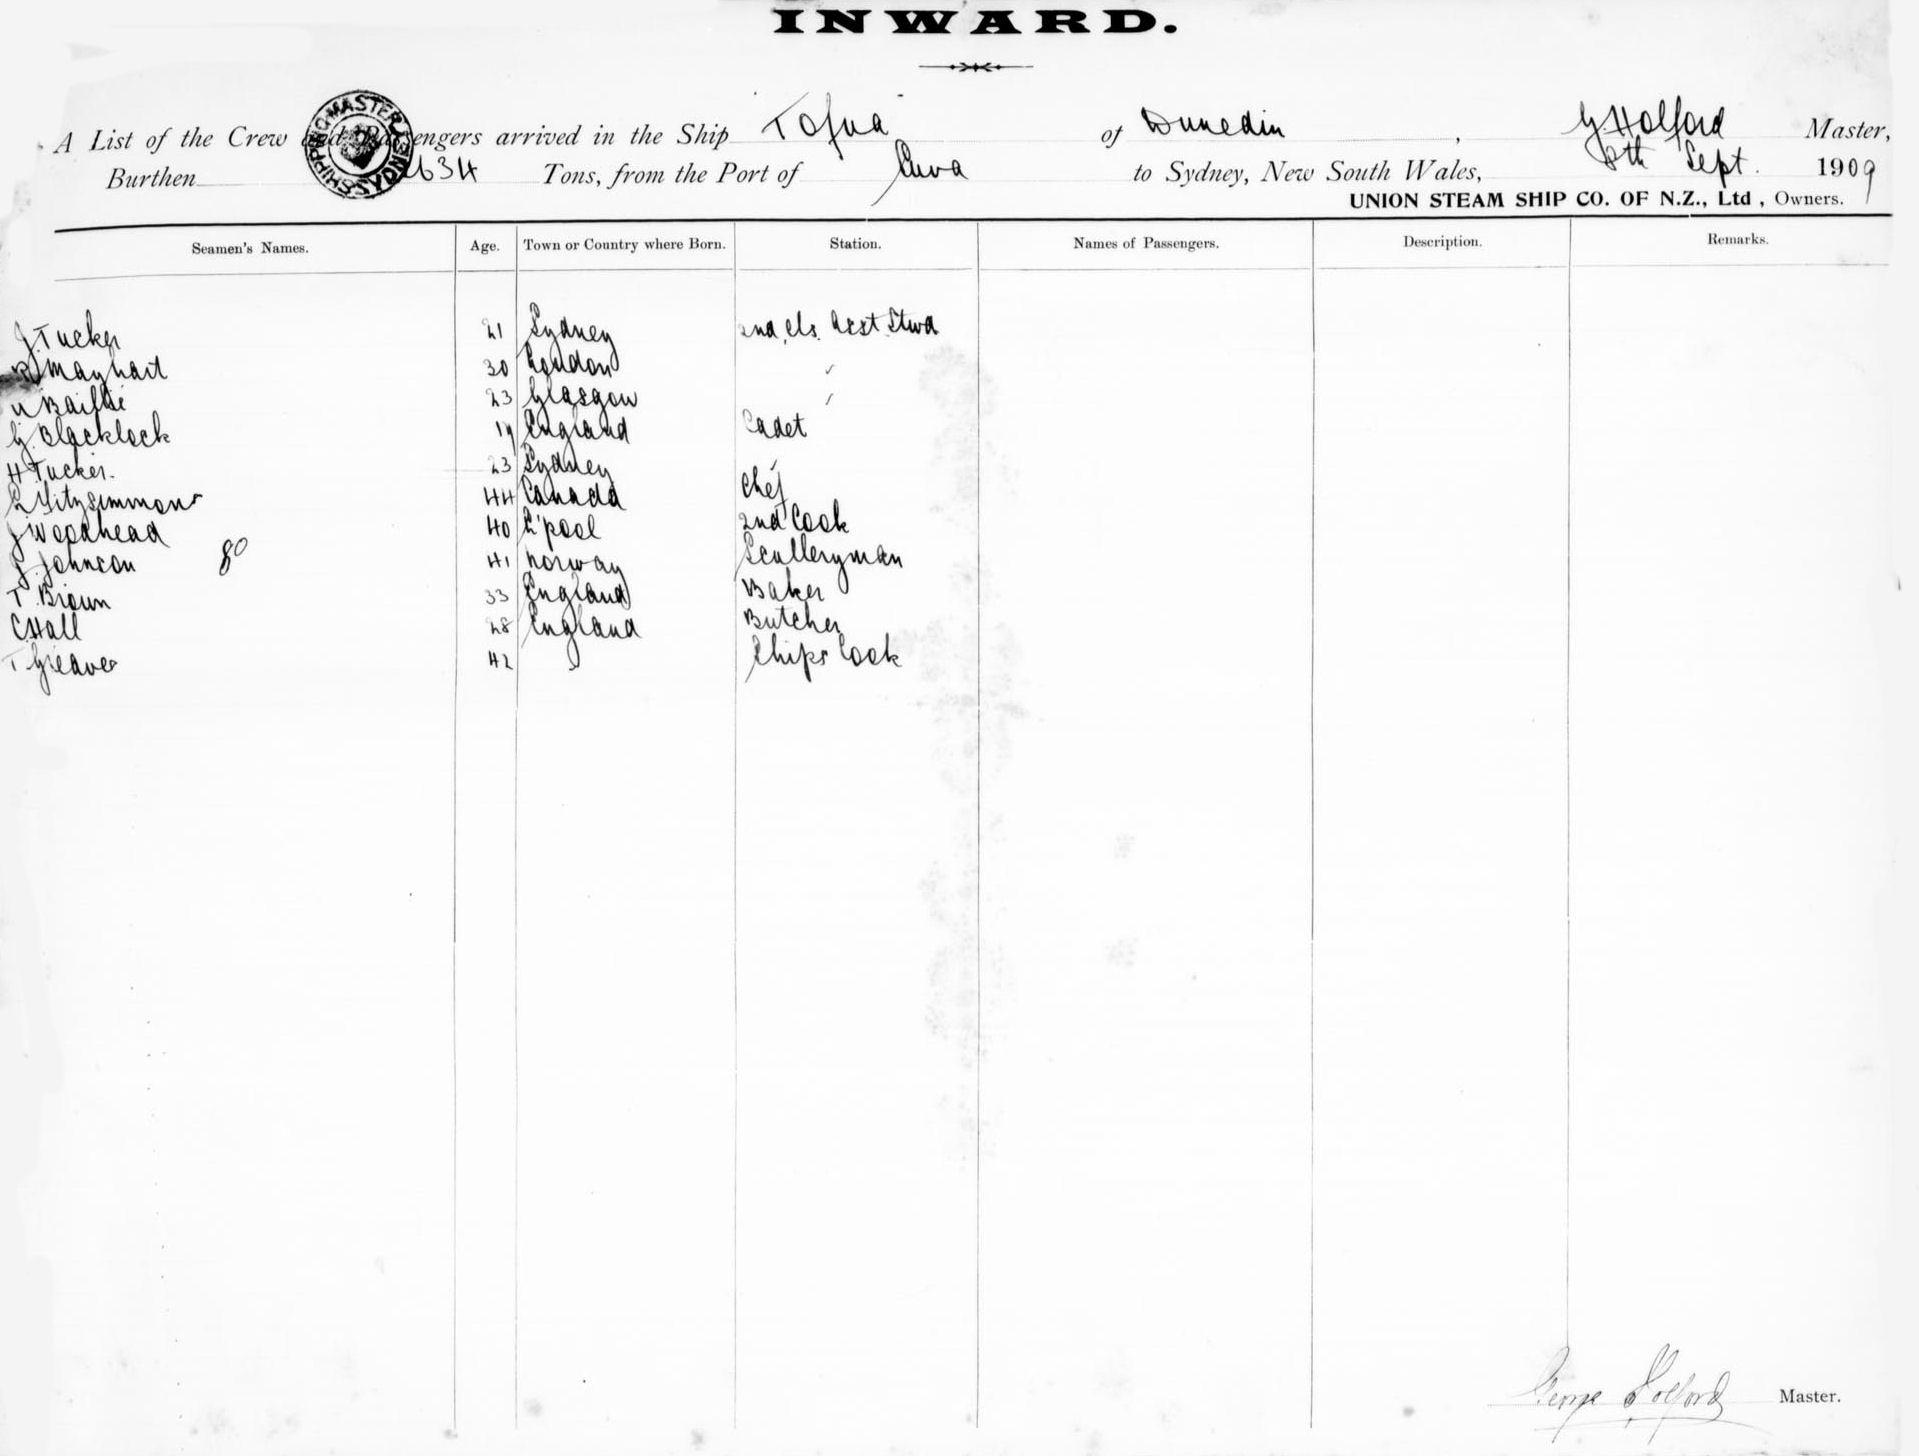 INWARD.
A List of the Crew and Passengers arrived in the Ship Tofua of Dunedin, G. Holford Master,
Burthen 2634 Tons, from the Port of Suva to Sydney, New South Wales, 8th Sept. 1909
UNION STEAM SHIP CO. OF N.Z., Ltd, Owners.
SHIPPING MASTER SYDNEY
Seamen's Names. Age. Town or Country where Born. Station. Names of Passengers. Description. Remarks.
J. Tucker 21 Sydney 2nd Cls. Asst. Stwd
Maynart 30 London ✓
Baillie 23 Glasgow /
G. Blacklock 19 England Cadet
H Tucker. 23 Sydney ✓
Fitzsimmons 44 Canada Chef
J Woodhead 40 L'pool 2nd Cook
J. Johnson 80 41 Norway Sculleryman
T. Brown 33 England Baker
C. Hall 28 England Butcher
T Greaves 42 Ships Cook
George Holford Master.